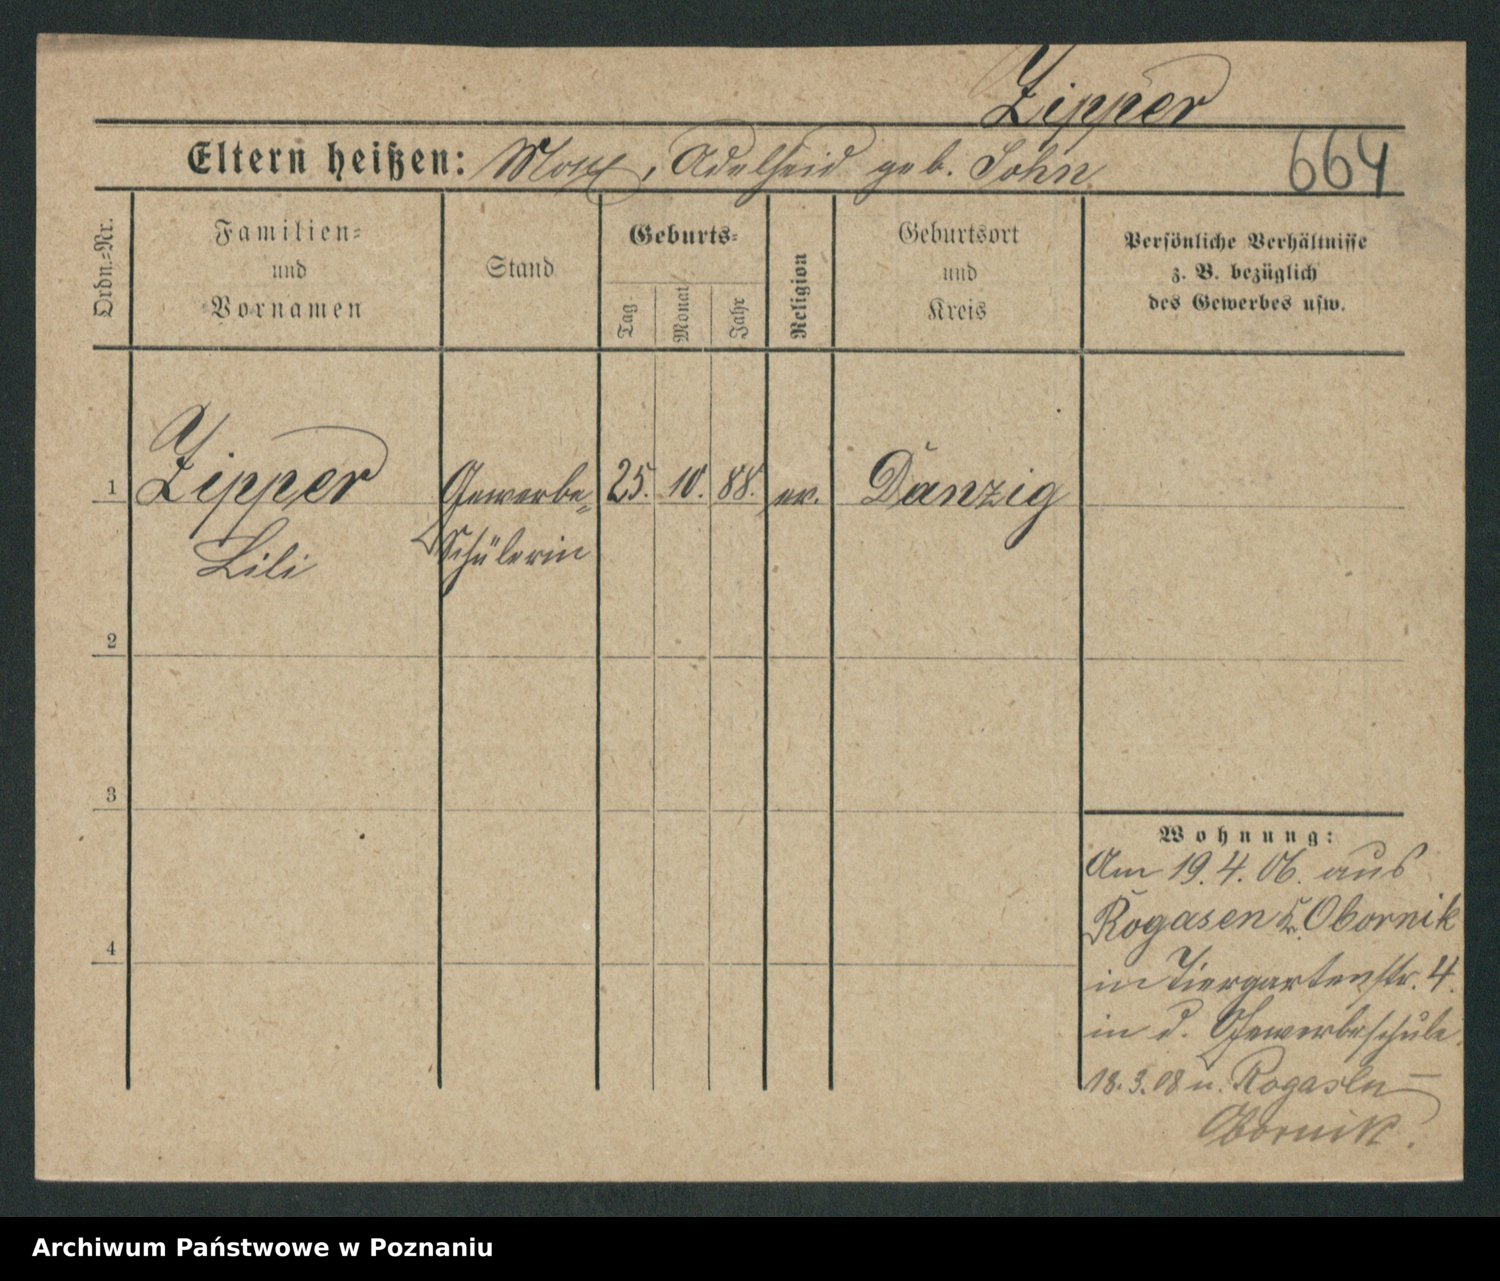 Zipper
Eltern heißen: Max, Adelheid geb. John
664
Ordn.-Nr.
Familien-
und
Vornamen
Stand
Geburts-
Tag
Monat
Jahr
Religion
Geburtsort
und
Kreis
Persönliche Verhältnisse
z. B. bezüglich
des Gewerbes usw.
1
Zipper
Lili
Gewerbe-
Schülerin
25. 10. 88. ev. Danzig
2
3
4
Wohnung:
Am 19.4.06. aus
Rogasen Kr. Obornik
in Tiergartenstr. 4.
in d. Gewerbeschule.
18.3.08 n. Rogasen –
Obornik.
Archiwum Państwowe w Poznaniu